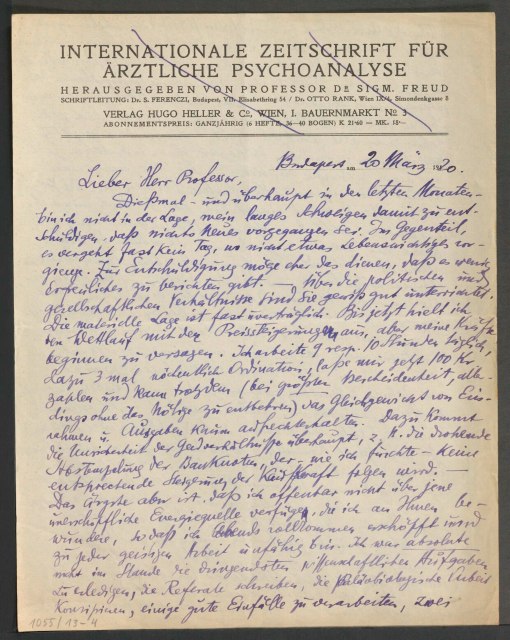 INTERNATIONALE ZEITSCHRIFT FÜR
ÄRZTLICHE PSYCHOANALYSE
HERAUSGEGEBEN VON PROFESSOR DR SIGM. FREUD
SCHRIFTLEITUNG: Dr. S. FERENCZI, Budapest, VII. Elisabethring 54 / Dr. OTTO RANK, Wien IX/4, Simondenkgasse 8
VERLAG HUGO HELLER & Co, WIEN, I. BAUERNMARKT No 3
ABONNEMENTSPREIS: GANZJÄHRIG (6 HEFTE, 36—40 BOGEN) K 21·60 = MK. 18·—
Budapest am 20 März 1920.
Lieber Herr Professor,
Dießmal - und überhaupt in den letzten Monaten -
bin ich nicht in der Lage, mein langes Schweigen damit zu ent-
schuldigen, daß nichts Neues vorgegangen sei. Im Gegenteil,
es vergeht fast kein Tag, wo nicht etwas Lebenswichtiges vor-
gienge. Zur Entschuldigung möge eher das dienen, daß es wenig
Erfreuliches zu berichten gibt. Über die politischen und
gesellschaftlichen Verhältnisse sind Sie gewiß gut unterrichtet.
Die materielle Lage ist fast unerträglich. Bis jetzt hielt ich
den Wettlauf mit den Preissteigerungen aus, aber meine Kräfte
beginnen zu versagen. Ich arbeite 9 resp. 10 Stunden täglich,
dazu 3 mal wöchentlich Ordination, laße mir jetzt 100 Kr
zahlen und kann trotzdem (bei größter Bescheidenheit, aller-
dings ohne das Nötige zu entbehren) das Gleichgewicht von Ein-
nahmen u. Ausgaben kaum aufrechterhalten. Dazu kommt
die Unsicherheit der Geldverhältniße überhaupt, z. B. die drohende
Abstempelung der Banknoten, der - wie ich fürchte - keine
entsprechende Steigerung der Kaufkraft folgen wird. -
Das Ärgste aber ist, daß ich offenbar nicht über jene
unerschöpfliche Energiequelle verfüge, die ich an Ihnen be-
wundere, so daß ich Abends vollkommen erschöpft und
zu jeder geistigen Arbeit unfähig bin. Ich war absolute
nicht im Stande die dringendsten wissenschaftlichen Aufgaben
zu erledigen, die Referate schreiben, die Arbeit
konzipieren, einige gute Einfälle zu verarbeiten, zwei
1055/13-4